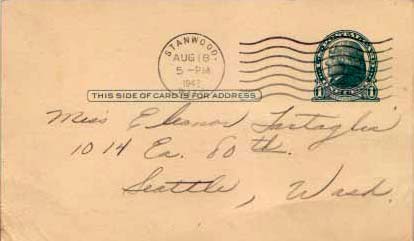 STANWOOD.
AUG 18
5-PM
1942
U.S. POSTAGE
1 1
THIS SIDE OF CARD IS FOR ADDRESS
Miss Eleanor Tartaglia
1014 Ea. 80th.
Seattle, Wash.